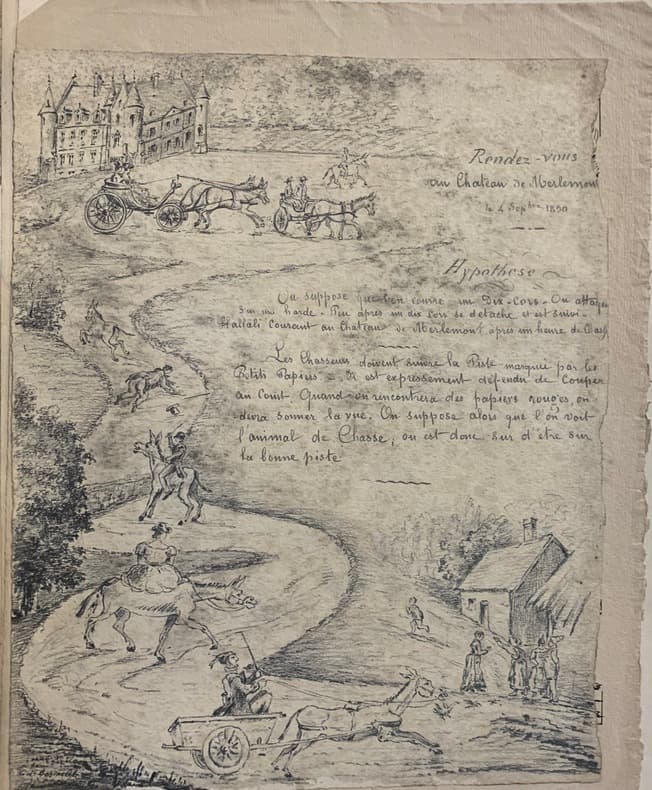 Rendez-vous
au Chateau de Merlemont
le 4 Septbre 1890
Hypothese
On suppose que l'on courre un Dix-Cors - On attaque
sur une harde - Peu après un dix Cors se détache et est suivi -
Hallali Courant au Chateau de Merlemont après un heure de Chasse
Les Chasseurs doivent suivre la Piste marquée par les
Petits Papiers - Il est expressement défendu de Couper
au Court Quand on rencontrera des papiers rouges, on
devra sonner la vue. On suppose alors que l'on voit
l'animal de Chasse, on est donc sur d'être sur
la bonne piste